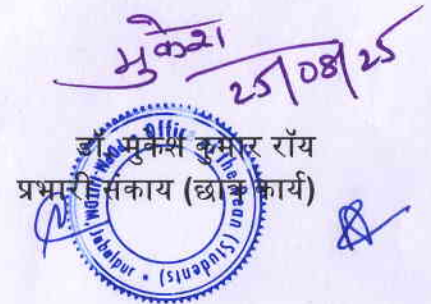 मुकेश
25/08/25
डॉ. मुकेश कुमार रॉय
प्रभारी संकाय (छात्र कार्य)
Office of the Dean (Students)
Jabalpur